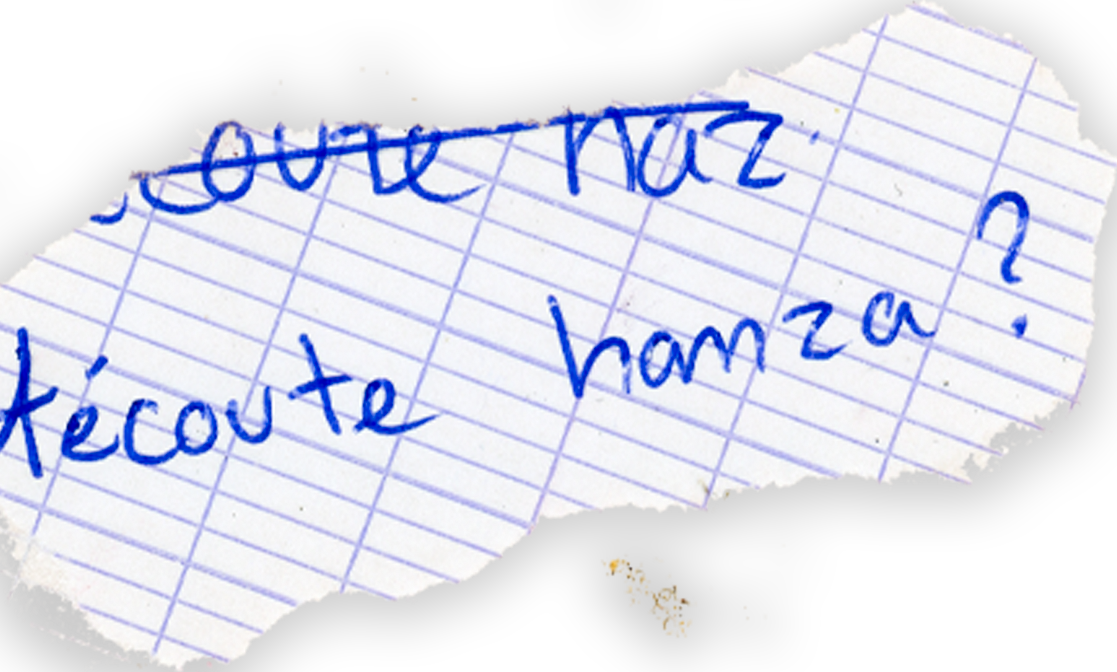 coute naz.
técoute hamza ?